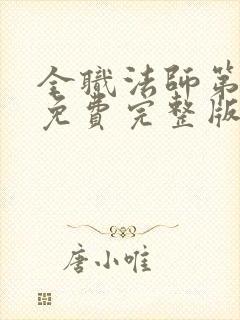 全職法師第
免費完整版
唐小唯